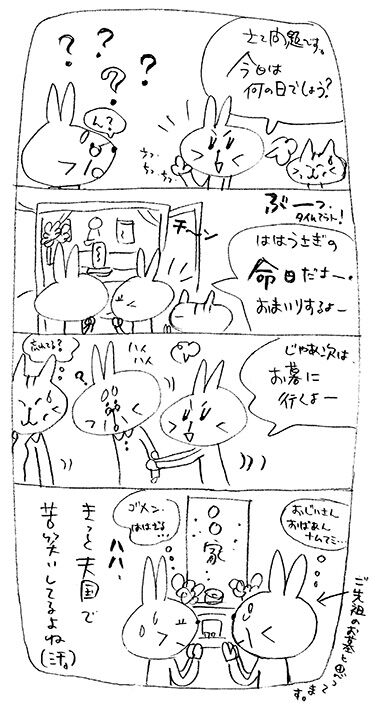 さて問題です。
今日は
何の日でしょう?
?
?
?
?
ん?
チッ
チッ
チッ
ぶーっ、
タイムアウト!
ははうさぎの
命日だよー。
おまいりするよー
チーン
じゃあ次は、
お墓に
行くよー
ハイ
ハイ
?
忘れてる?
○○家
おじいさん
おばあさん
ナムマミ…
ご先祖のお墓と思ってます。
ゴメン、
ははよ…
ハハ、
きっと天国で
苦笑いしてるよね
(汗)。